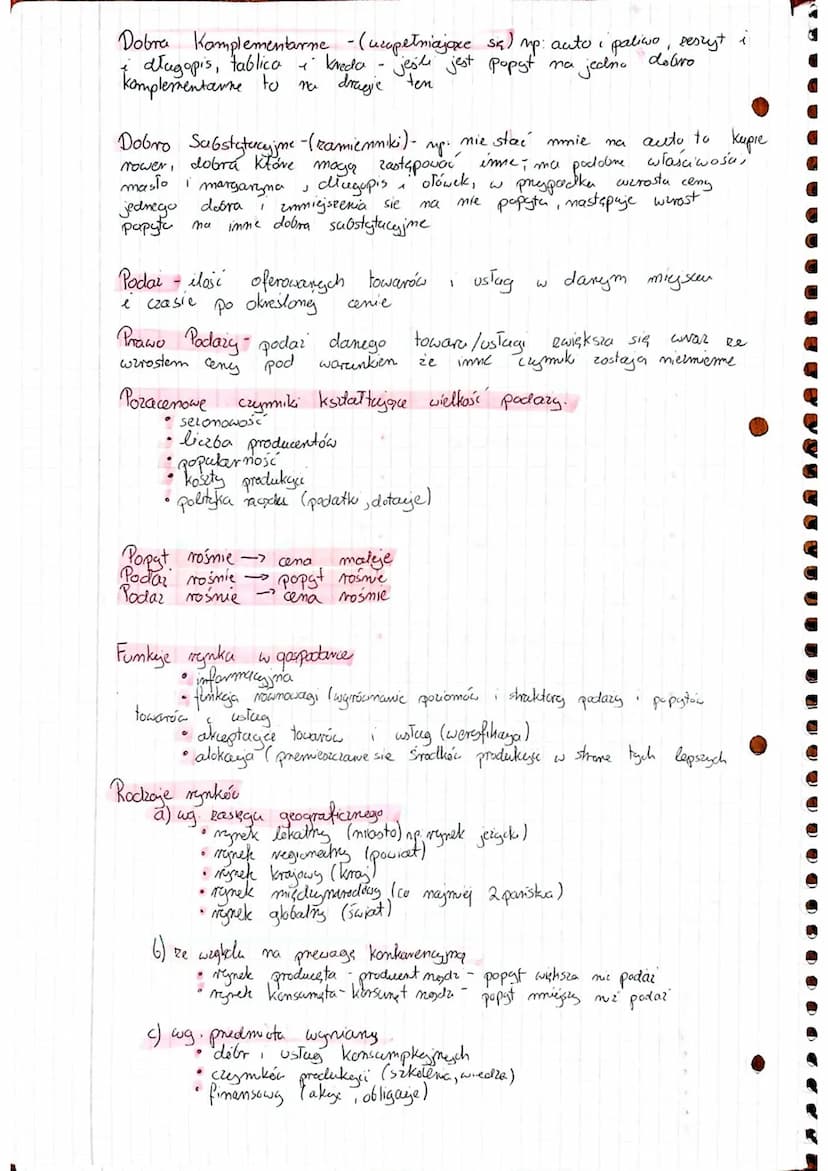 Dobra Komplementarne - (uzupełniające się) np: auto i paliwo, zeszyt i
i długopis, tablica i kreda - jeśli jest popyt na jedno dobro
komplementarne to na drugie ten
Dobro Substytucyjne - (zamienniki) - np. nie stać mnie na auto to kupię
rower, dobra które mogą zastępować inne; ma podobne właściwości,
masło i margaryna, długopis i ołówek, w przypadku wzrostu ceny
jednego dobra i zmniejszenia się na nie popytu, następuje wzrost
popytu na inne dobra substytucyjne
Podaż - ilość oferowanych towarów i usług w danym miejscu
i czasie po określonej cenie
Prawo Podaży - podaż danego towaru/usługi zwiększa się wraz ze
wzrostem ceny pod warunkiem że inne czynniki zostają niezmienne
Pozacenowe czynniki kształtujące wielkość podaży.
• sezonowość
• liczba producentów
• popularność
• koszty produkcji
• polityka rządu (podatki, dotacje)
Popyt rośnie → cena maleje
Podaż rośnie → popyt rośnie
Podaż rośnie → cena rośnie
Funkcje rynku w gospodarce
• informacyjna
• funkcja równowagi (wyrównanie poziomów i struktury podaży i popytów
towarów i usług
• akceptujące towarów i usług (weryfikacja)
• alokacja (przemieszczanie się środków produkcji w stronę tych lepszych
Rodzaje rynków
a) wg. zasięgu geograficznego
• rynek lokalny (miasto) np. rynek jeżycki)
• rynek regionalny (powiat)
• rynek krajowy (kraj)
• rynek międzynarodowy (co najmniej 2 państwa)
• rynek globalny (świat)
b) ze względu na przewagę konkurencyjną
• rynek producenta - producent rządzi - popyt większa niż podaż
• rynek konsumenta - konsument rządzi - popyt mniejszy niż podaż
c) wg. przedmiotu wymiany
• dóbr i usług konsumpcyjnych
• czynników produkcji (szkolenia, wiedza)
• finansowy (akcje, obligacje)